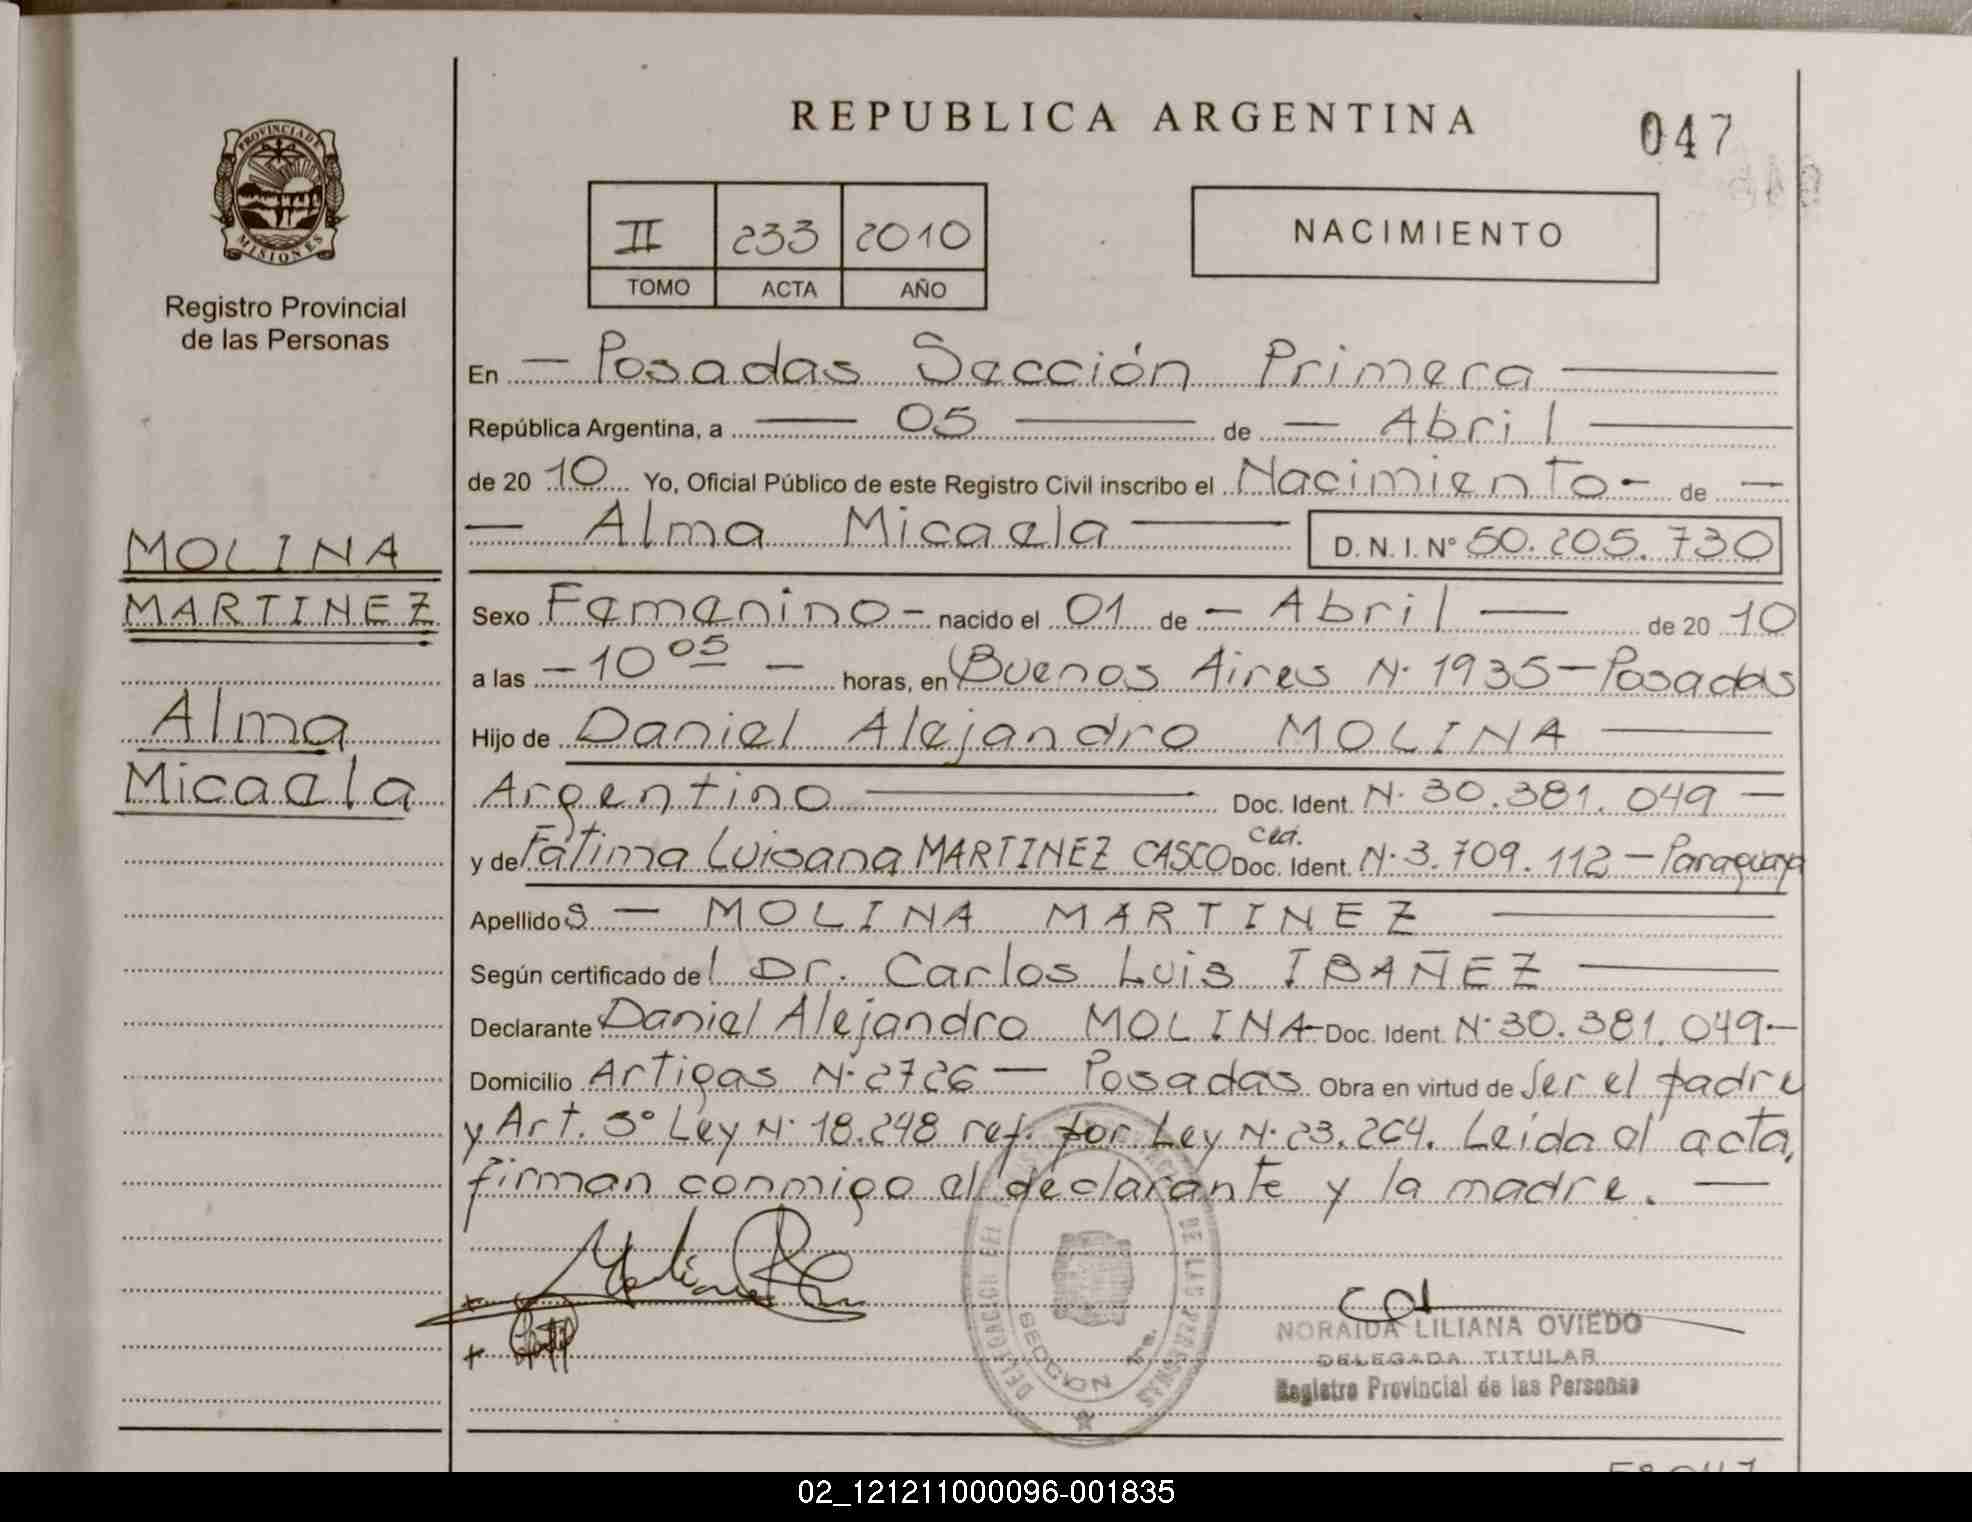 REPUBLICA ARGENTINA
047
PROVINCIA DE MISIONES
Registro Provincial
de las Personas
II 233 2010
TOMO ACTA AÑO
NACIMIENTO
En — Posadas Sección Primera —
República Argentina, a — 05 — de — Abril —
de 20 10 Yo, Oficial Público de este Registro Civil inscribo el Nacimiento - de —
— Alma Micaela — D.N.I. N° 50.205.730
MOLINA
MARTINEZ
Alma
Micaela
Sexo Femenino - nacido el 01 de — Abril — de 20 10
a las — 10 05 — horas, en Buenos Aires N· 1935 — Posadas
Hijo de Daniel Alejandro MOLINA —
Argentino — Doc. Ident. N· 30.381.049 —
y de Fátima Luisana MARTINEZ CASCO Ced. Doc. Ident. N· 3.709.112 — Paraguaya
Apellidos — MOLINA MARTINEZ —
Según certificado del Dr. Carlos Luis IBAÑEZ —
Declarante Daniel Alejandro MOLINA - Doc. Ident. N· 30.381.049 -
Domicilio Artigas N· 2726 — Posadas Obra en virtud de Ser el padre
y Art. 5° Ley N· 18.248 ref. por Ley N· 23.264. Leída el acta,
firman conmigo el declarante y la madre. —
DELEGACION DEL REGISTRO PROVINCIAL DE LAS PERSONAS
SECCION 1ra.
NORAIDA LILIANA OVIEDO
DELEGADA TITULAR
Registro Provincial de las Personas
02_121211000096-001835